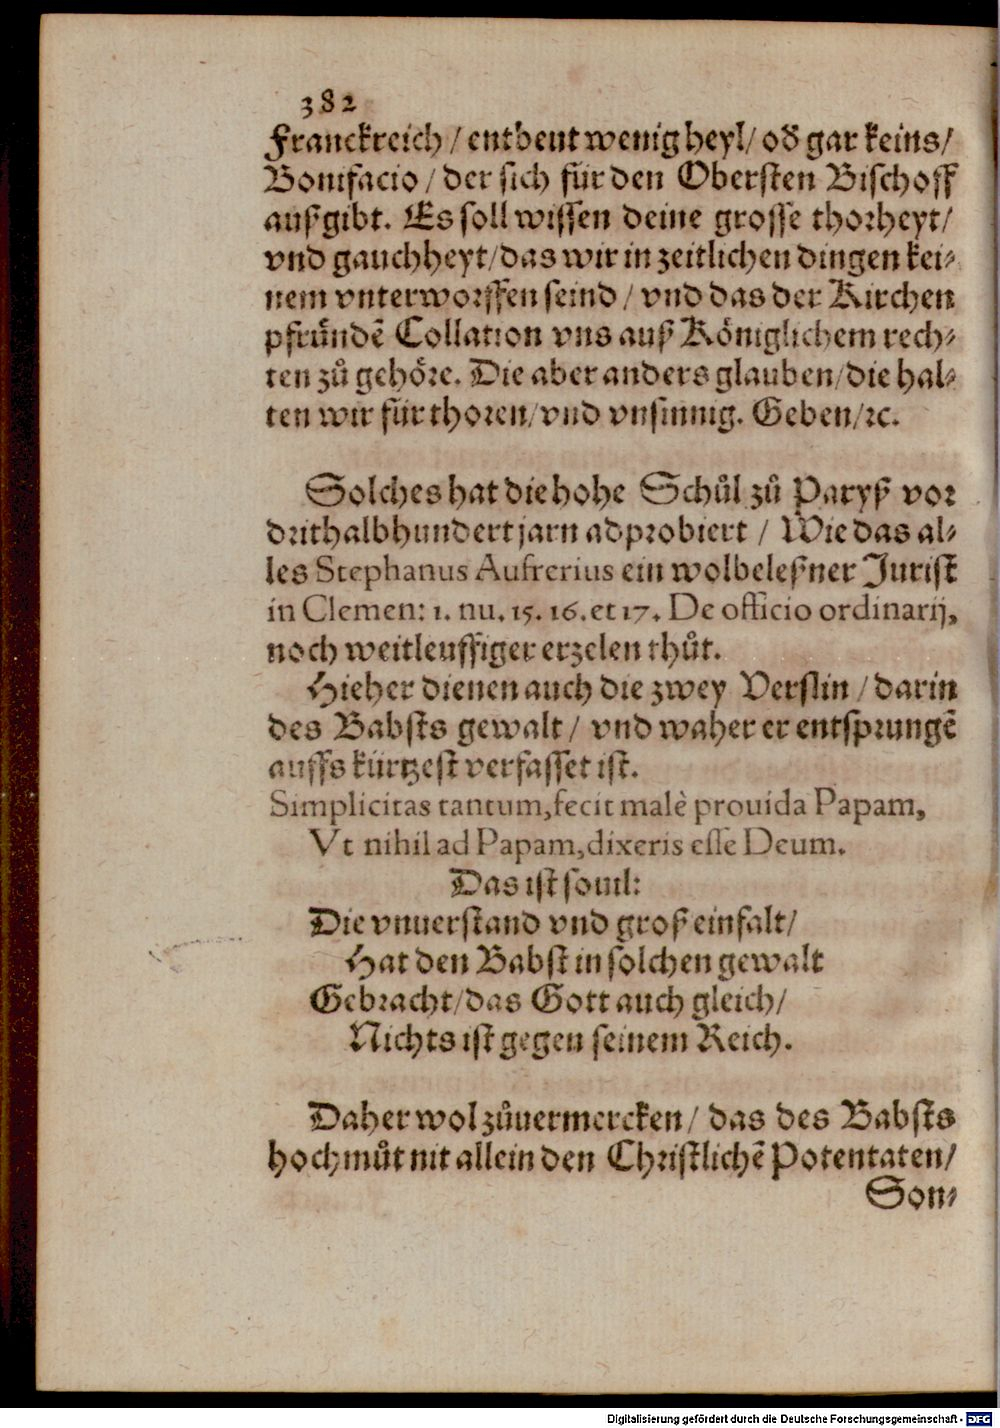 382
Franckreich / entbeut wenig heyl / od̕ gar keins /
Bonifacio / der sich für den Obersten Bischoff
außgibt. Es soll wissen deine grosse thorheyt /
vnd gauchheyt / das wir in zeitlichen dingen kei-
nem vnterworffen seind / vnd das der Kirchen
pfründẽ Collation vns auß Königlichem rech-
ten zů gehöre. Die aber anders glauben / die hal-
ten wir für thoren / vnd vnsinnig. Geben / ꝛc.
Solches hat die hohe Schůl zů Paryß vor
drithalbhundert jarn adprobiert / Wie das al-
les Stephanus Aufrerius ein wolbeleßner Jurist
in Clemen: 1. nu. 15. 16. et 17. De officio ordinarij,
noch weitleuffiger erzelen thůt.
Hieher dienen auch die zwey Verslin / darin
des Babsts gewalt / vnd waher er entsprungẽ
auffs kürtzest verfasset ist.
Simplicitas tantum, fecit malè prouida Papam,
Vt nihil ad Papam, dixeris esse Deum.
Das ist souil:
Die vnuerstand vnd groß einfalt /
Hat den Babst in solchen gewalt
Gebracht / das Gott auch gleich /
Nichts ist gegen seinem Reich.
Daher wol zůuermercken / das des Babsts
hochmůt nit allein den Christlichẽ Potentaten /
Son-
Digitalisierung gefördert durch die Deutsche Forschungsgemeinschaft - DFG